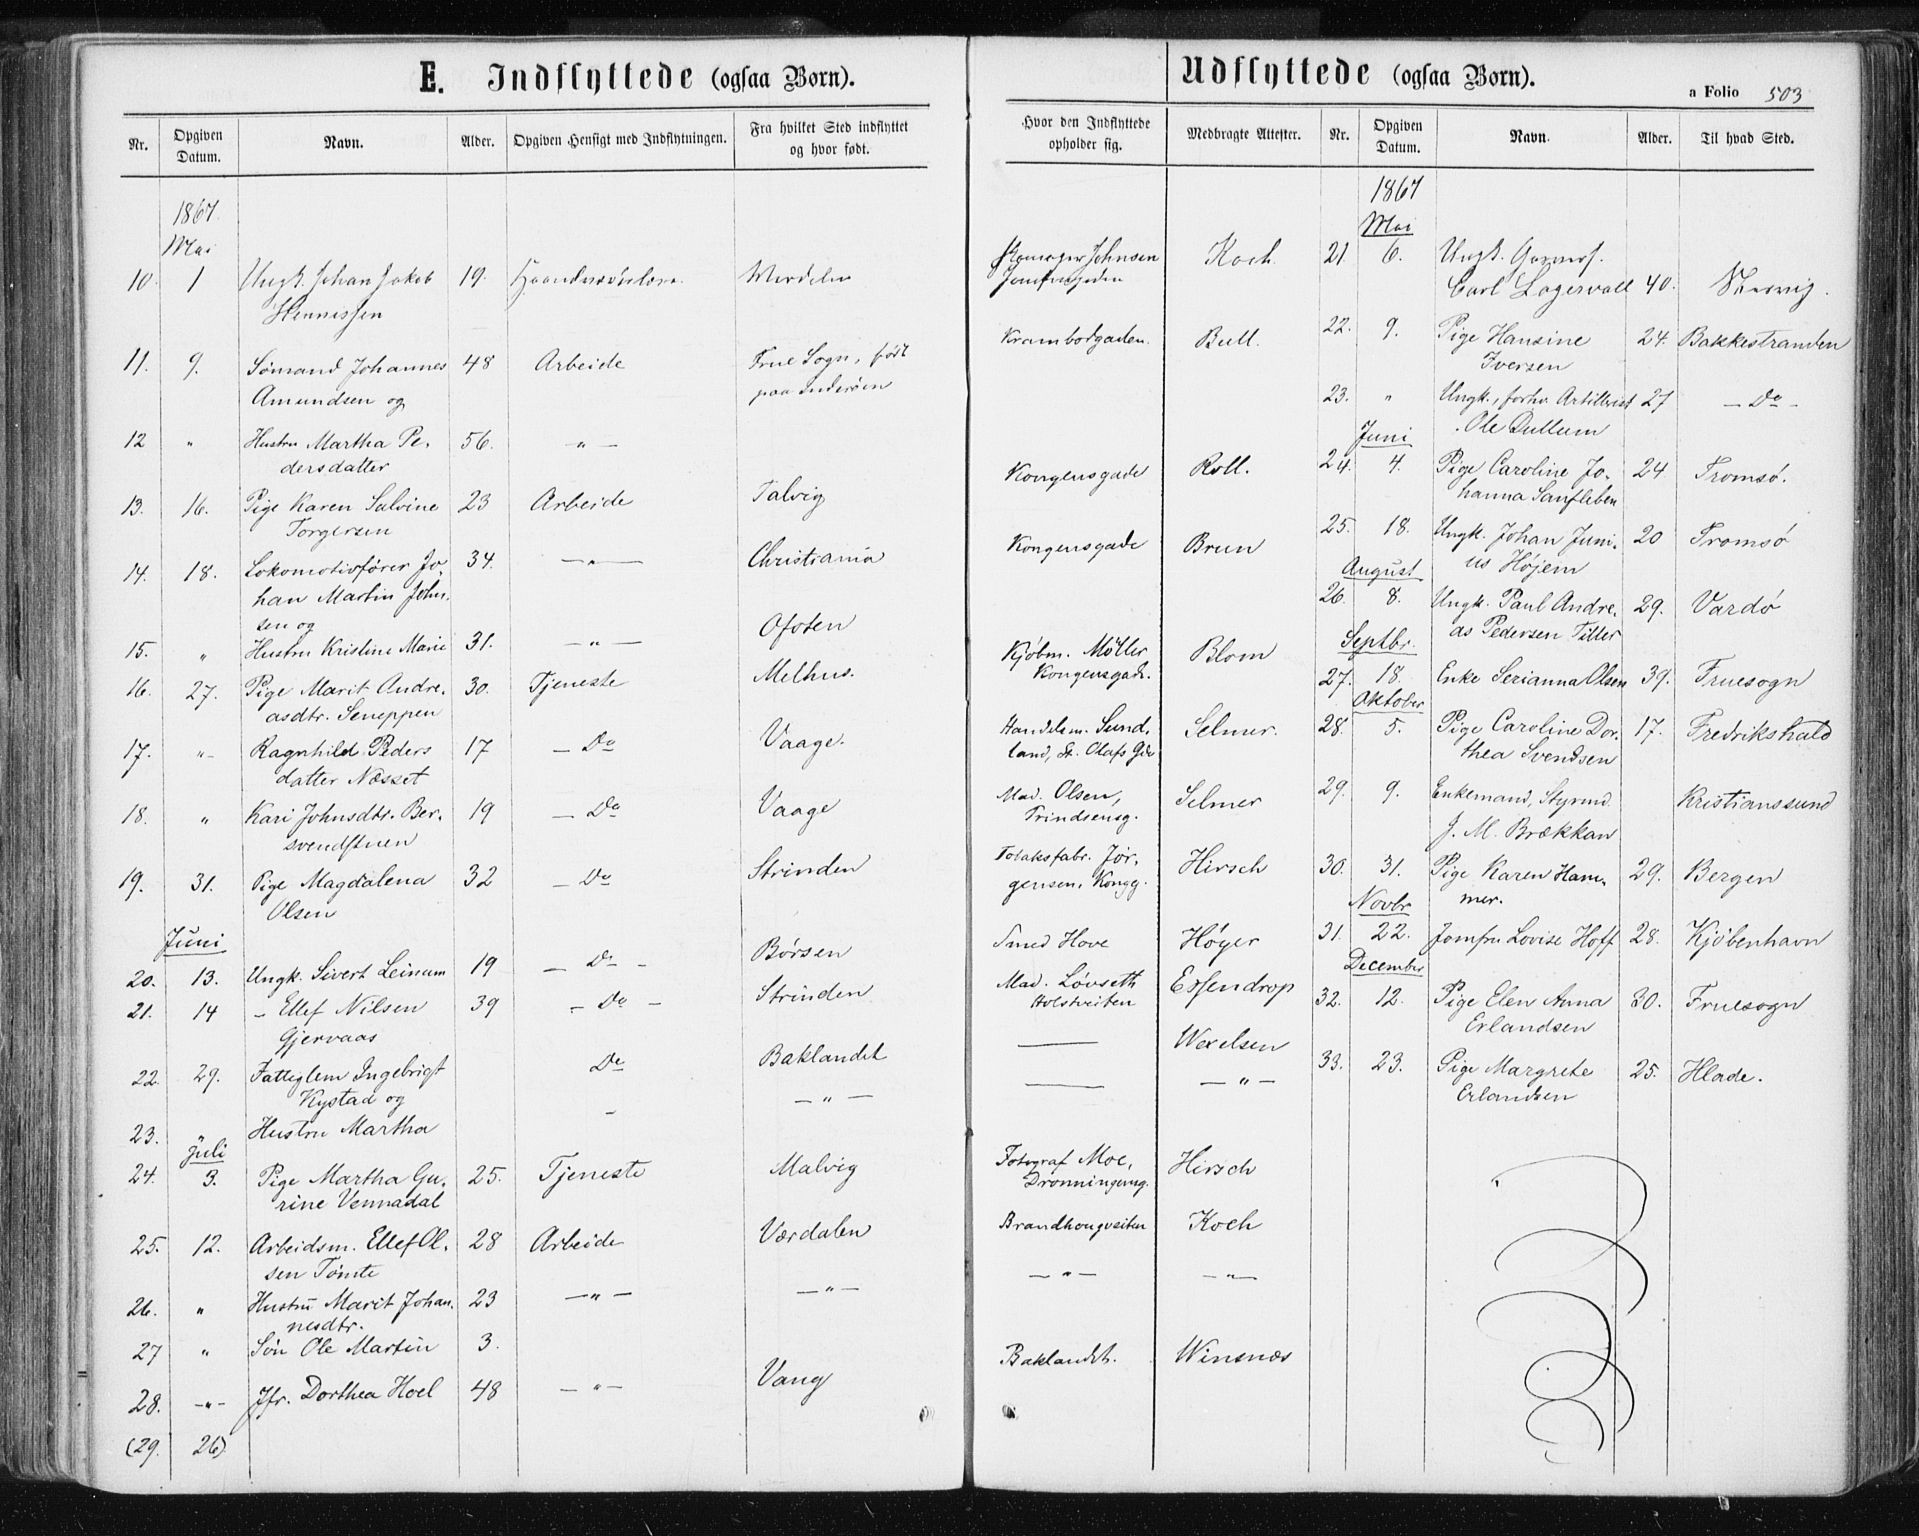 E. Indflyttede (ogsaa Børn).
Nr. Opgiven Datum. Navn. Alder. Opgiven Hensigt med Indflytningen. Fra hvilket Sted indflyttet og hvor født.
1867.
Mai
10. 1 Ungk. Johan Jakob 19.
11. 9. Sømand Johannes 48 Arbeide Frue Sogn, født
Amundsen og paa Inderøen
12 " Hustru Martha Pe- 56. — " —
dersdatter
13. 16. Pige Karen Salvine 23 Arbeide Talvig
Torgersen
14. 18. Lokomotivfører Jo- 34. — " — Christiania
han Martin John-
sen og
15. " Hustru Kristine Marie 31. — " — Ofoten
16. 27. Pige Marit Andre- 30. Tjeneste Melhus.
asdtr. Seneppen
17. " Ragnhild Peders 17 — Do Vaage.
datter Næsset
18. " Kari Johnsdtr. Ber- 19 — Do Vaage
svendstuen
19. 31. Pige Magdalena 32 — Do Strinden
Olsen
Juni
20. 13. Ungk. Sivert Leinum 19 — Do - Børsen
21. 14 - Ellef Nilsen 39 - Do - Strinden
Gjervaas
22. 29. Fattiglem Ingebrigt Do Baklandet
Kystad og
23. " Hustru Martha - — " —
Juli
24. 3. Pige Martha Gu- 25. Tjeneste Malvig
rine Vennadal
25. 12. Arbeidsm. Ellef Ol- 28 Arbeide Værdalen
sen Tømte
26. " Hustru Marit Johan- 23 — " — — " —
nesdtr.
27 " Søn Ole Martin 3.
28. - " - Jfr. Dorthea Hoel 48 — " — Vang
(29. 26)
Udflyttede (ogsaa Børn).
a Folio 503
Hvor den Indflyttede opholder sig. Medbragte Attester. Nr. Opgiven Datum. Navn. Alder. Til hvad Sted.
1867
Mai
Johnsen Koch. 21. 6. Ungk.
Carl Lagervall 40.
Krambodgaden. Bull. 22. 9. Pige Hansine 24. Bakkestranden
Iversen
23. " Ungk., forhv. Artillerist 27 — Do -
Ole Dullum
Juni
Kongensgade Roll. 24. 4. Pige Caroline Jo- 24. Tromsø.
hanna Sanfleben
Kongensgade Brun 25. 18. Ungk. Johan Juni- 20 Tromsø
us Højem
August
26. 8. Ungk. Paul Andre- 29. Vardø
as Pedersen Tiller
Septbr.
Kjøbm. Møller Blom 27. 18. Enke Serianna Olsen 39. Fruesogn
Kongensgade.
Oktober
Handelsm. Sund- Selmer. 28. 5. Pige Caroline Dor- 17. Fredrikshald
land, St. Olafs Gde thea Svendsen
Mad. Olsen, Selmer 29. 9. Enkemand, Styrmd. Kristianssund
Prindsensg. J. M. Brækkan
Tobaksfabr. Jør- Hirsch 30. 31. Pige Karen Ham- 29. Bergen
gensen, Kongg. mer.
Novbr
Smed Hove Høyer 31. 22. Jomfru Lovise Hoff 28. Kjøbenhavn
December
Mad. Løvseth Essendrop 32. 12. Pige Elen Anna 30. Fruesogn
Holstveiten Erlandsen
— Wexelsen
— — " — 33. 23. Pige Margrete 25. Hlade.
Erlandsen
Fotograf Moe, Hirsch
Dronningensg.
Brandhougveiten Koch
— " — — " —
Baklandet. Winsnæs